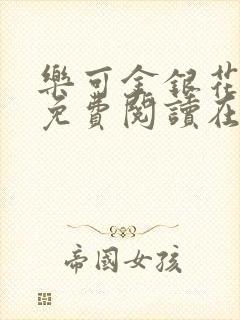 樂可金銀花
免費閱讀在
帝國女孩